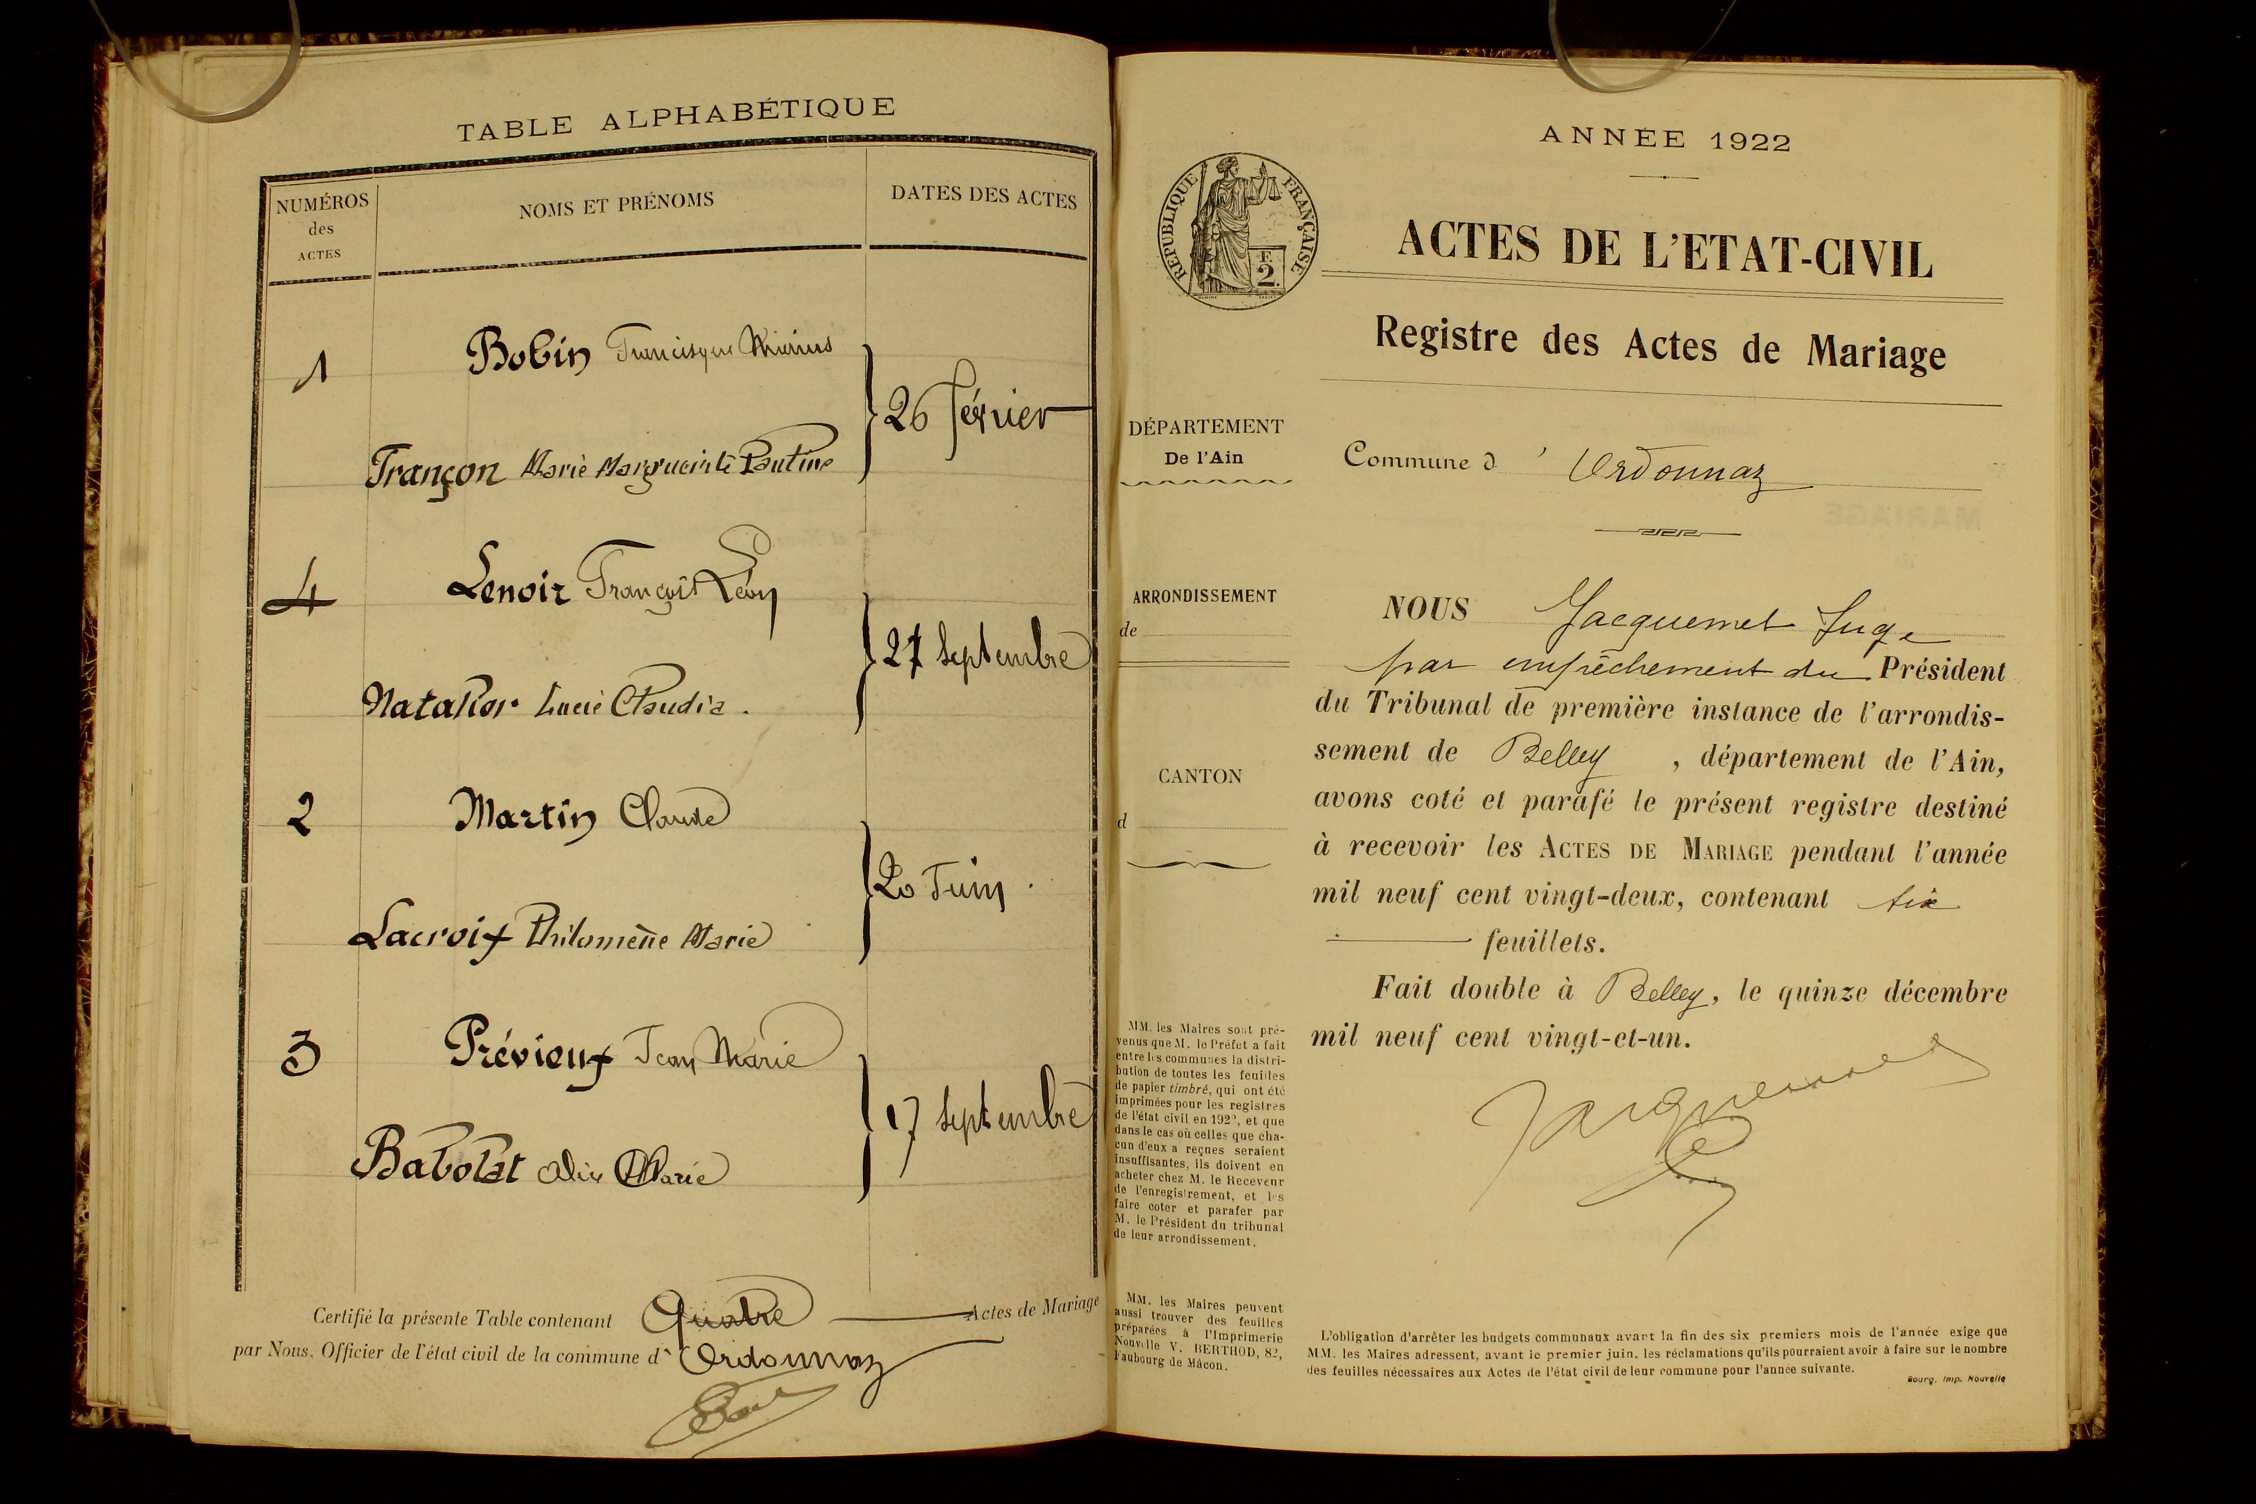 TABLE ALPHABÉTIQUE
NUMÉROS
des
ACTES
NOMS ET PRÉNOMS
DATES DES ACTES
1
Bobin Francisque Marius
26 février
Trançon Marie Marguerite Pauline
4
Lenoir François Léon
27 Septembre
Lucie Claudia.
2
Martin Claude
20 Juin.
Lacroix Philomène Marie
3
Prévieux Jean Marie
17 Septembre
Babolat Marie
Certifié la présente Table contenant Quatre Actes de Mariage
par Nous, Officier de l'état civil de la commune d'Ordonnaz
ANNÉE 1922
RÉPUBLIQUE FRANÇAISE
2F.
ACTES DE L'ETAT-CIVIL
Registre des Actes de Mariage
DÉPARTEMENT
De l'Ain
Commune d'Ordonnaz
ARRONDISSEMENT
de
CANTON
d
NOUS Jacquemet Juge
par empêchement du Président
du Tribunal de première instance de l'arrondis-
sement de Belley, département de l'Ain,
avons coté et parafé le présent registre destiné
à recevoir les ACTES DE MARIAGE pendant l'année
mil neuf cent vingt-deux, contenant six
feuillets.
Fait double à Belley, le quinze décembre
mil neuf cent vingt-et-un.
Jacquemet
MM. les Maires sont pré-
venus que M. le Préfet a fait
entre les communes la distri-
bution de toutes les feuilles
de papier timbré, qui ont été
imprimées pour les registres
de l'état civil en 1922, et que
dans le cas où celles que cha-
cun d'eux a reçues seraient
insuffisantes, ils doivent en
acheter chez M. le Receveur
de l'enregistrement, et les
faire coter et parafer par
M. le Président du tribunal
de leur arrondissement.
MM. les Maires peuvent
aussi trouver des feuilles
préparées à l'Imprimerie
Nouvelle V. BERTHOD, 82,
Faubourg de Mâcon.
L'obligation d'arrêter les budgets communaux avant la fin des six premiers mois de l'année exige que
MM. les Maires adressent, avant le premier juin, les réclamations qu'ils pourraient avoir à faire sur le nombre
des feuilles nécessaires aux Actes de l'état civil de leur commune pour l'année suivante.
Bourg. Imp. Nouvelle